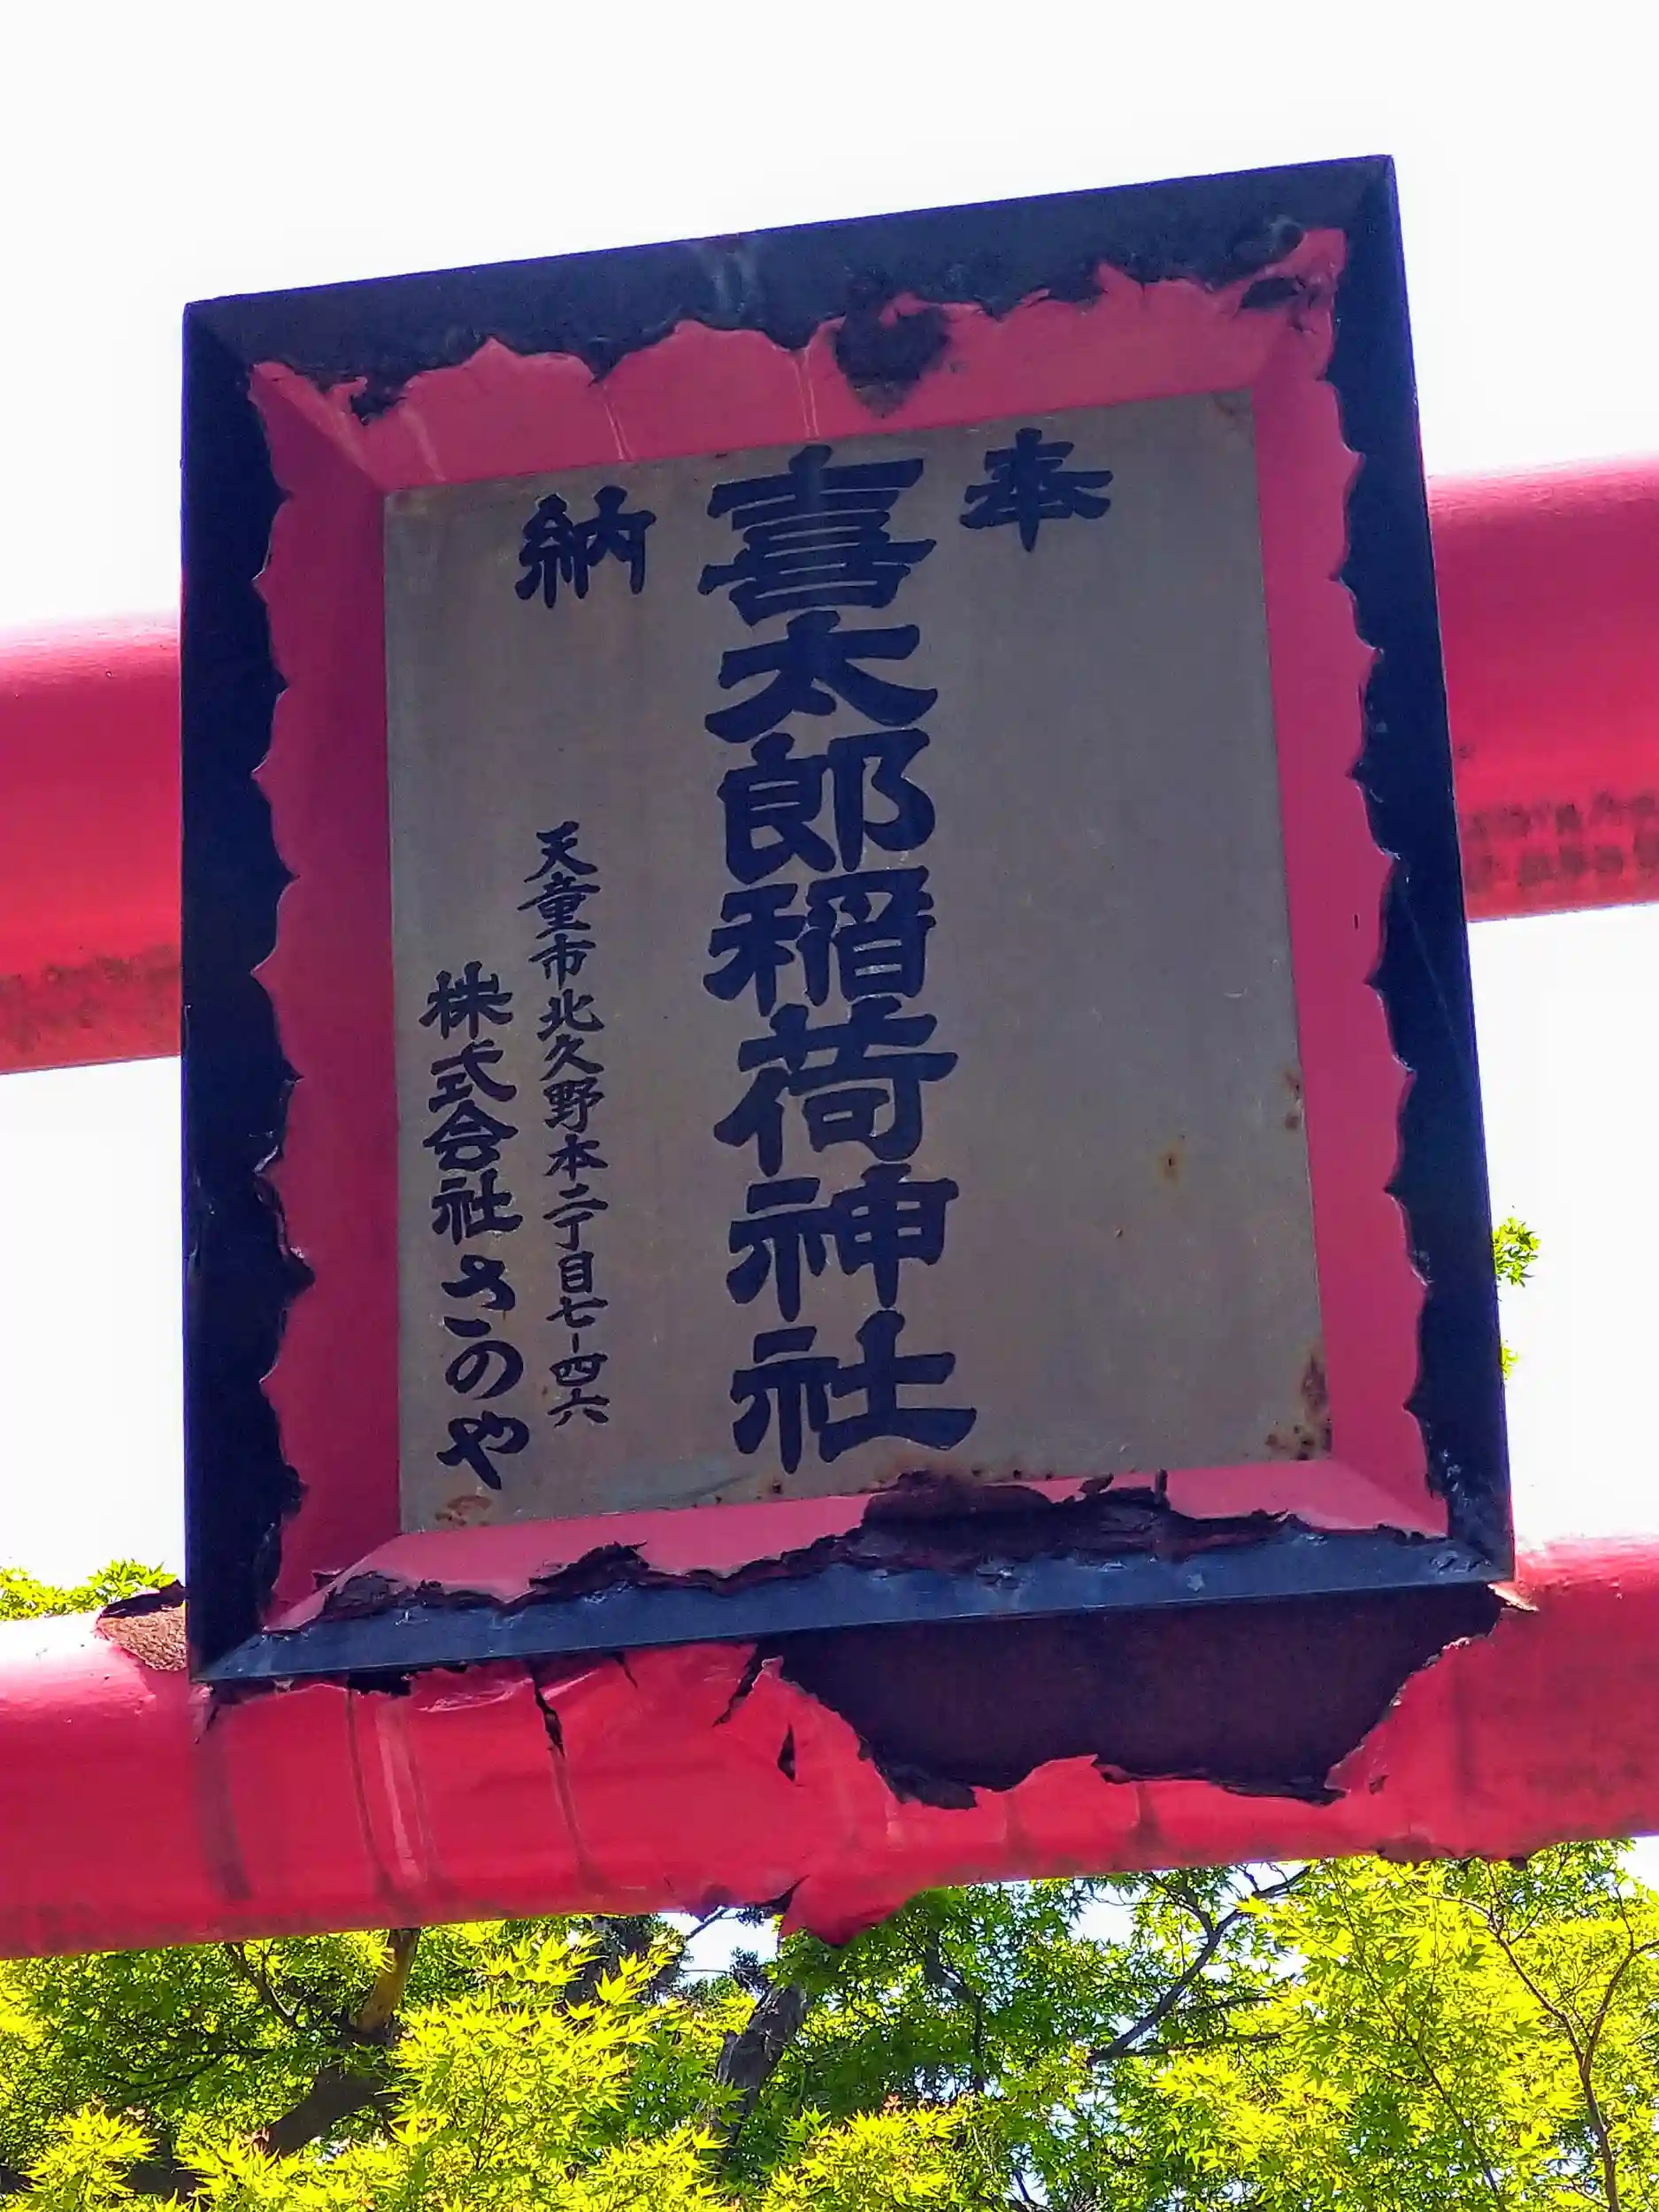 奉
喜太郎稲荷神社
納
天童市北久野本二丁目七-四六
株式会社さのや